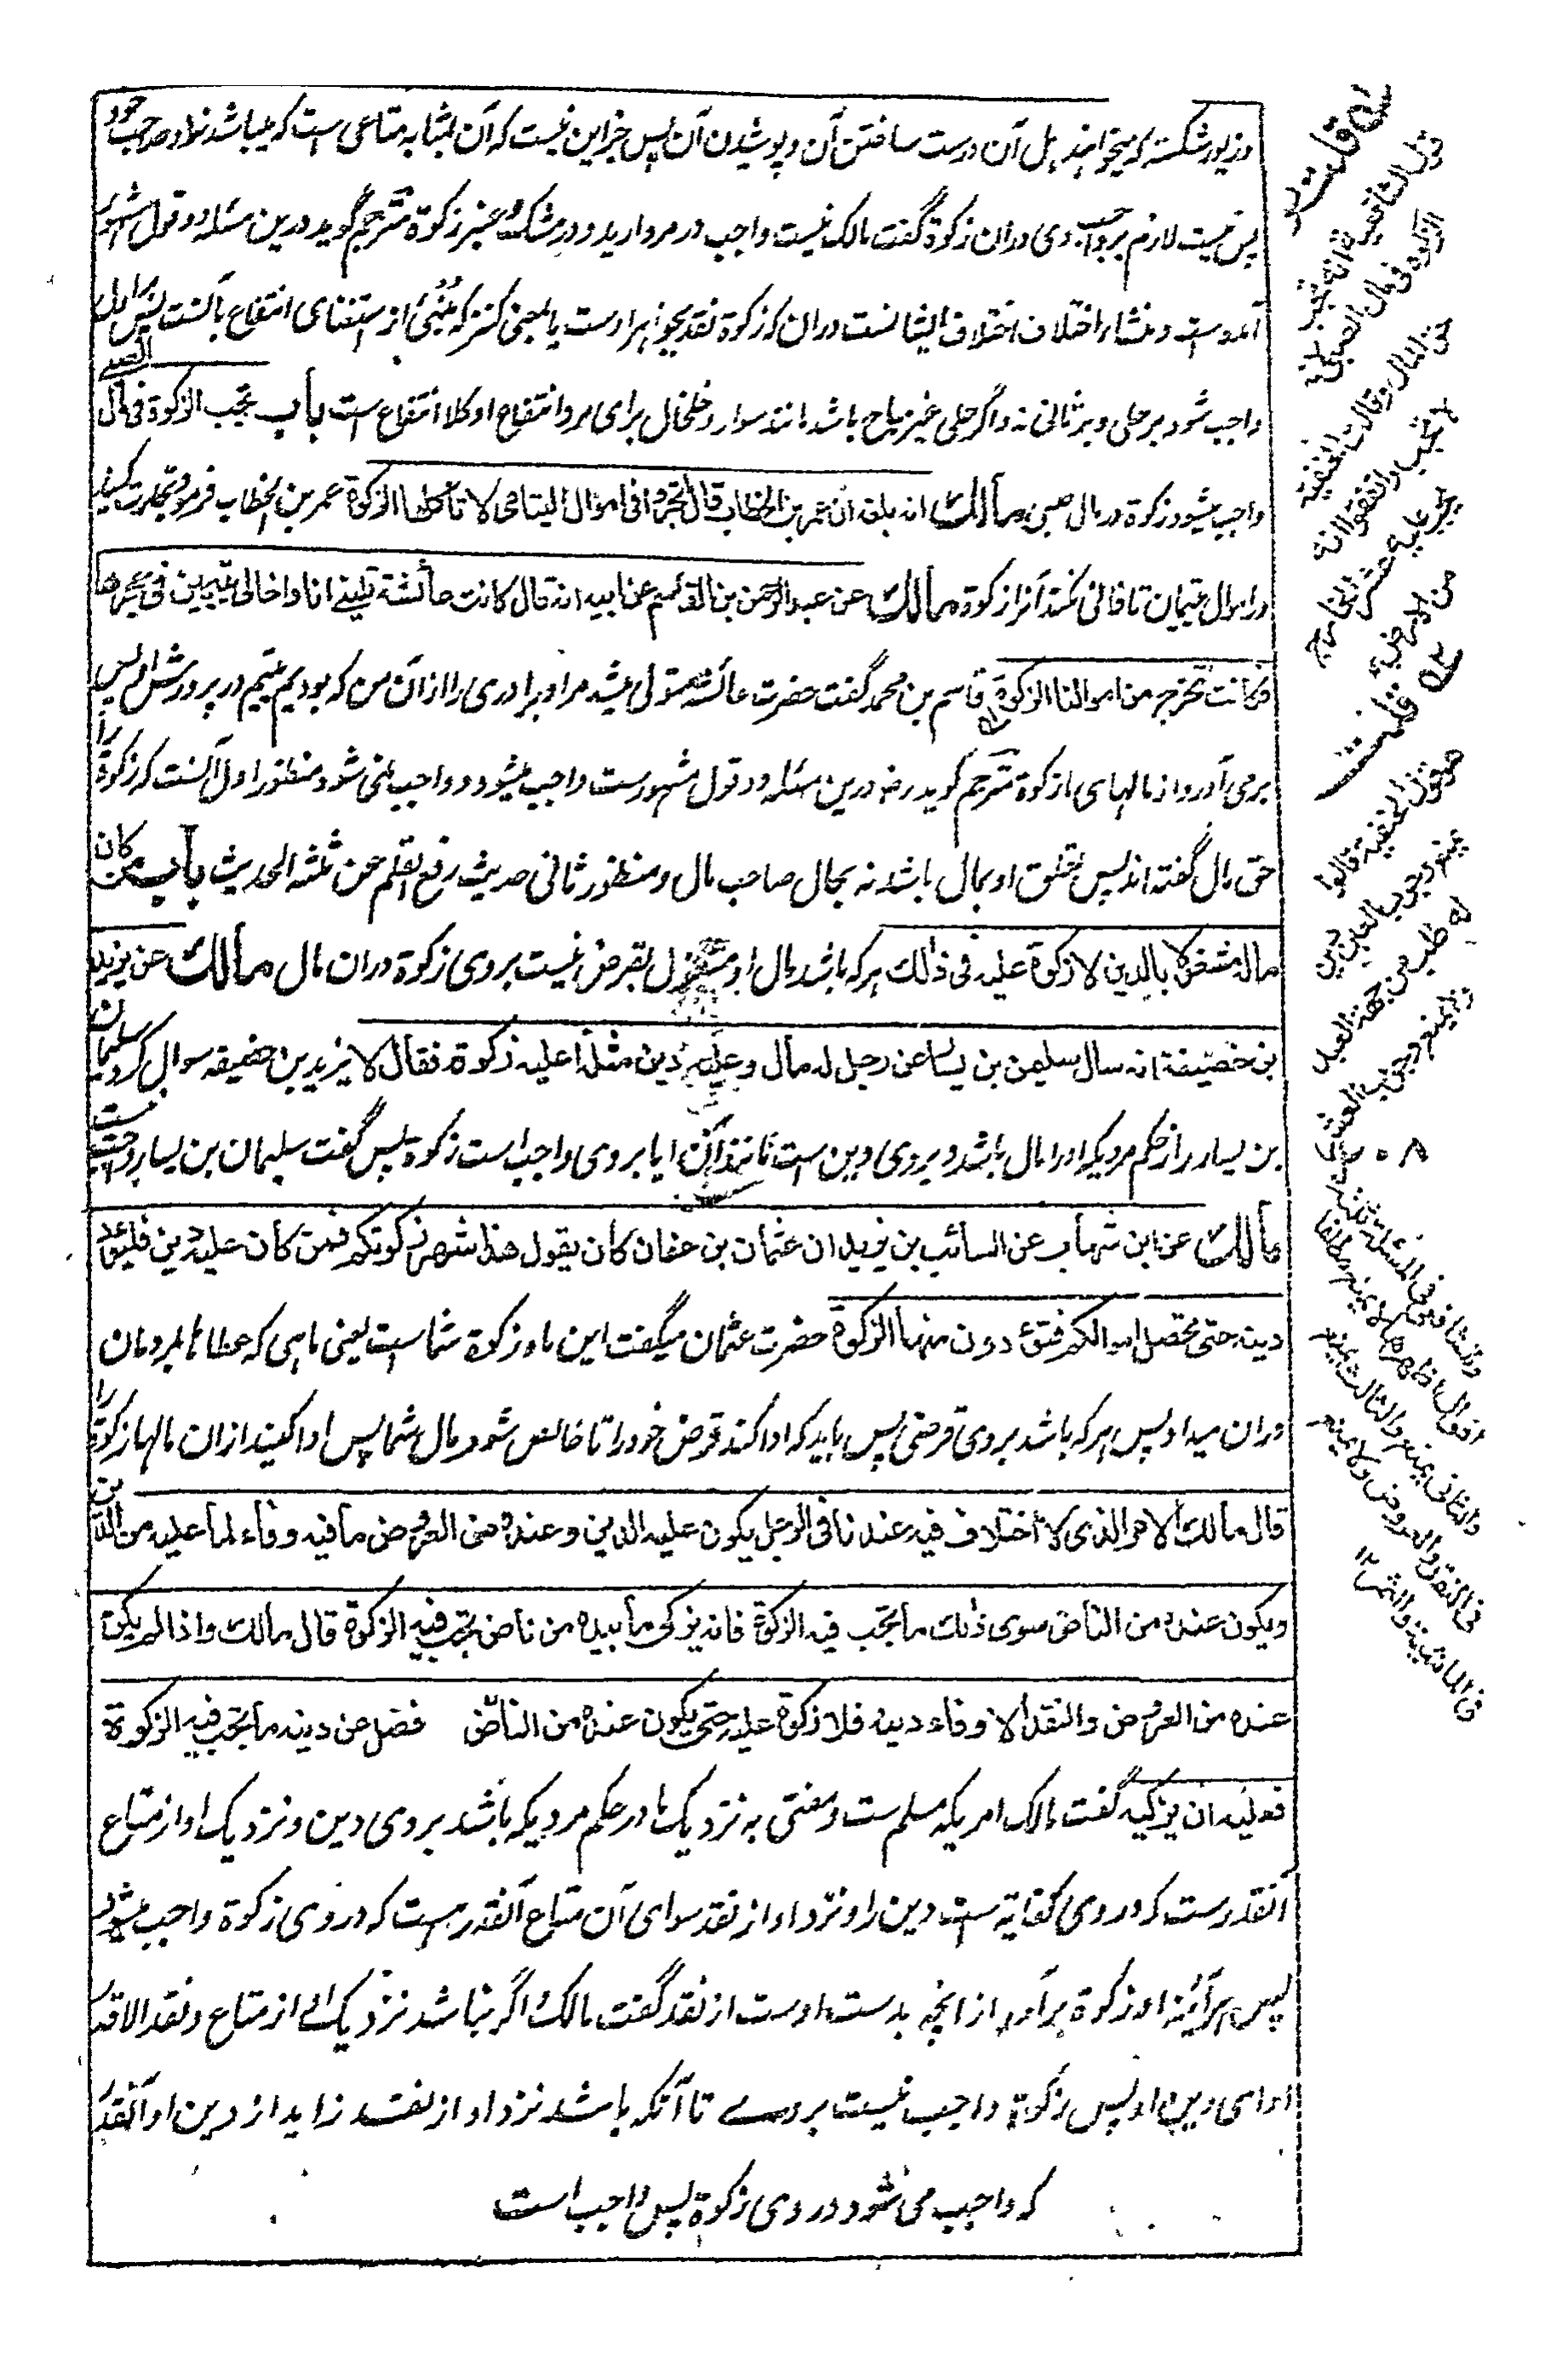 و زیور شکسته که میخواهند اهل آن درست ساختن آن و پوشیدن آن پس جز این نیست که آن بمثابه متاعی است که میباشد نزد صاحب خود
پس نیست لازم بر صاحب وی دران زکوة گفت مالک نیست واجب در مروارید و در مشک و عنبر زکوة مترجم گوید درین مسئله دو قول مشهور
آمده است و منشاء اختلاف اختلاف ایشانست دران که زکوة نقد بجوهر اوست یا بمعنی کنز که مُنبی از استغنای انتفاع بآنست پس بر اول
واجب شود بر حلی و بر ثانی نه و اگر حلی غیر مباح باشد مانند سوار و خلخال برای مرد انتفاع او کلا انتفاع است باب تجب الزکوة فی مال الصبی
واجب میشود زکوة در مال صبی مالك انه بلغه ان عمر بن الخطاب قال اتجروا فی اموال الیتامی لا تأکلها الزکوة عمر بن الخطاب فرمود تجارت کنید
در اموال یتیمان تا فانی نکند آنرا زکوة مالك عن عبد الرحمن بن القاسم عن ابیه انه قال کانت عائشة تلینی انا و اخا لی یتیمین فی حجرها
فکانت تخرج من اموالنا الزکوة قاسم بن محمد گفت حضرت عائشه متولی میشد مرا و برادری را از آن من که بودیم یتیم در پرورش او پس
برمی آورد از مالهای ما زکوة مترجم گوید رضـ درین مسئله دو قول مشهورست واجب میشود و واجب نمی شود منظور اول آنست که زکوة را
حق مال گفته اند پس تعلق او بمال باشد نه بحال صاحب مال و منظور ثانی حدیث رفع القلم عن ثلثه الحدیث باب من کان
ماله مشغولا بالدین لا زکوة علیه فی ذلك هر که باشد مال او مشغول بقرض نیست بروی زکوة دران مال مالك عن یزید
بن خصیفة انه سال سلیمن بن یسار عن رجل له مال و علیه دین مثله أعلیه زکوة فقال لا یزید بن خصیفه سوال کرد سلیمان
بن یسار را از حکم مردیکه او را مال باشد و بروی دین است مانند آن ایا بروی واجب است زکوة پس گفت سلیمان بن یسار
مالك عن ابن شهاب عن السائب بن یزید ان عثمان بن عفان کان یقول هذا شهر زکوتکم فمن کان علیه دین فلیؤد
دینه حتی تحصل اموالکم فتؤدون منها الزکوة حضرت عثمان میگفت این ماه زکوة شما است یعنی ماهی که عطا بمردمان
دران میداد پس هر که باشد بروی قرضی پس باید که ادا کند قرض خود را تا خالص شود مال شما پس ادا کنید ازان مالها زکوة را
قال مالك الامر الذی لا اختلاف فیه عندنا فی الرجل یکون علیه الدین و عنده من العروض ما فیه وفاء لما علیه من الدین
ویکون عنده من الناض سوی ذلك ما تجب فیه الزکوة فانه یزکی ما بیده من ناض تجب فیه الزکوة قال مالك و اذا لم یکن
عنده من العروض والنقد الا وفاء دینه فلا زکوة علیه حتی یکون عنده من الناض فضل عن دینه ما تجب فیه الزکوة
فعلیه ان یزکیه گفت مالک امریکه مسلم ست و مفتی به نزدیک ما در حکم مردیکه باشد بروی دین و نزدیک او از متاع
آنقدرست که در وی کفایة است دین را و نزد او از نقد سوای آن متاع آنقدر هست که در وی زکوة واجب میشود
پس هر آئینه او زکوة برآرد از انچه بدست اوست از نقد گفت مالک اگر نباشد نزدیک او از متاع و نقد الا قدر
ادای دین او پس زکوة واجب نیست بروے تا آنکه باشد نزد او از نقد زاید از دین او آنقدر
که واجب می شود در وی زکوة پس واجب است
قلت
قال الشافعیة
الزکوة فی مال الصبی
من المال وقالت الحنفیة
لا تجب واتفقوا انه
یجب علیه عشر الخارج
من ارضه
قلت
هو قول الحنفیة قالوا
یمنع وجوب الدین دین
له طلب من جهة العبد
ولا یمنع وجوب العشر
وللشافعی فی المسئلة ثلثة
اقوال اظهرها لا یمنع مطلقا
والثانی یمنع والثالث یمنع
فی النقد والعروض ولا یمنع
فی الماشیة والثمر ۱۲